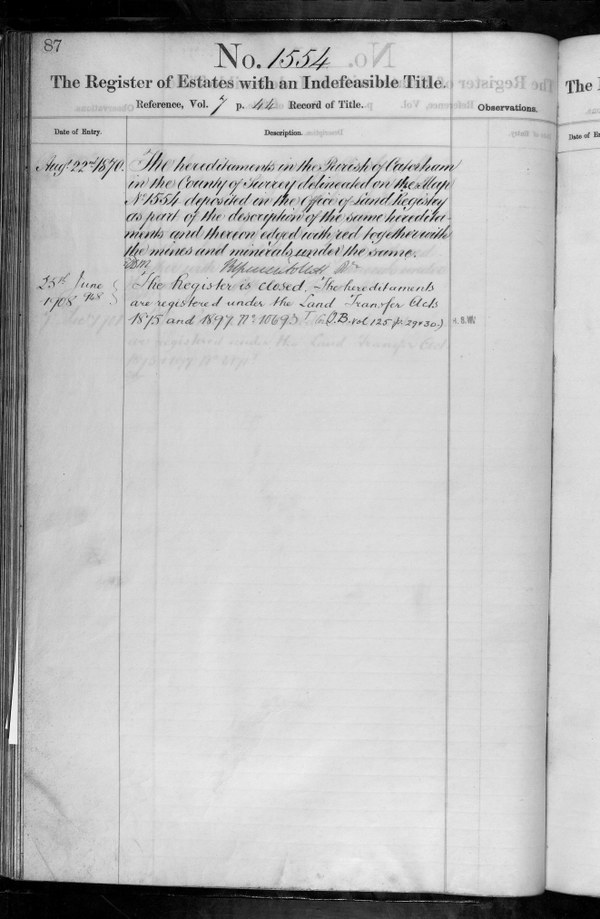 87
No. 1554
The Register of Estates with an Indefeasible Title.
Reference, Vol. 7 p. 44 Record of Title.
Observations.
Date of Entry.
Description.
Augt. 22nd 1870.
The hereditaments in the Parish of Caterham
in the County of Surrey delineated on the Map
No 1554 deposited in the Office of Land Registry
as part of the description of the same heredita-
ments and thereon edged with red together with
the mines and minerals under the same.
25th June
1908
The Register is closed. The hereditaments
are registered under the Land Transfer Acts
1875 and 1897 No. 10693 O.B. vol 125 p. 29 & 30.)
The
Date of En